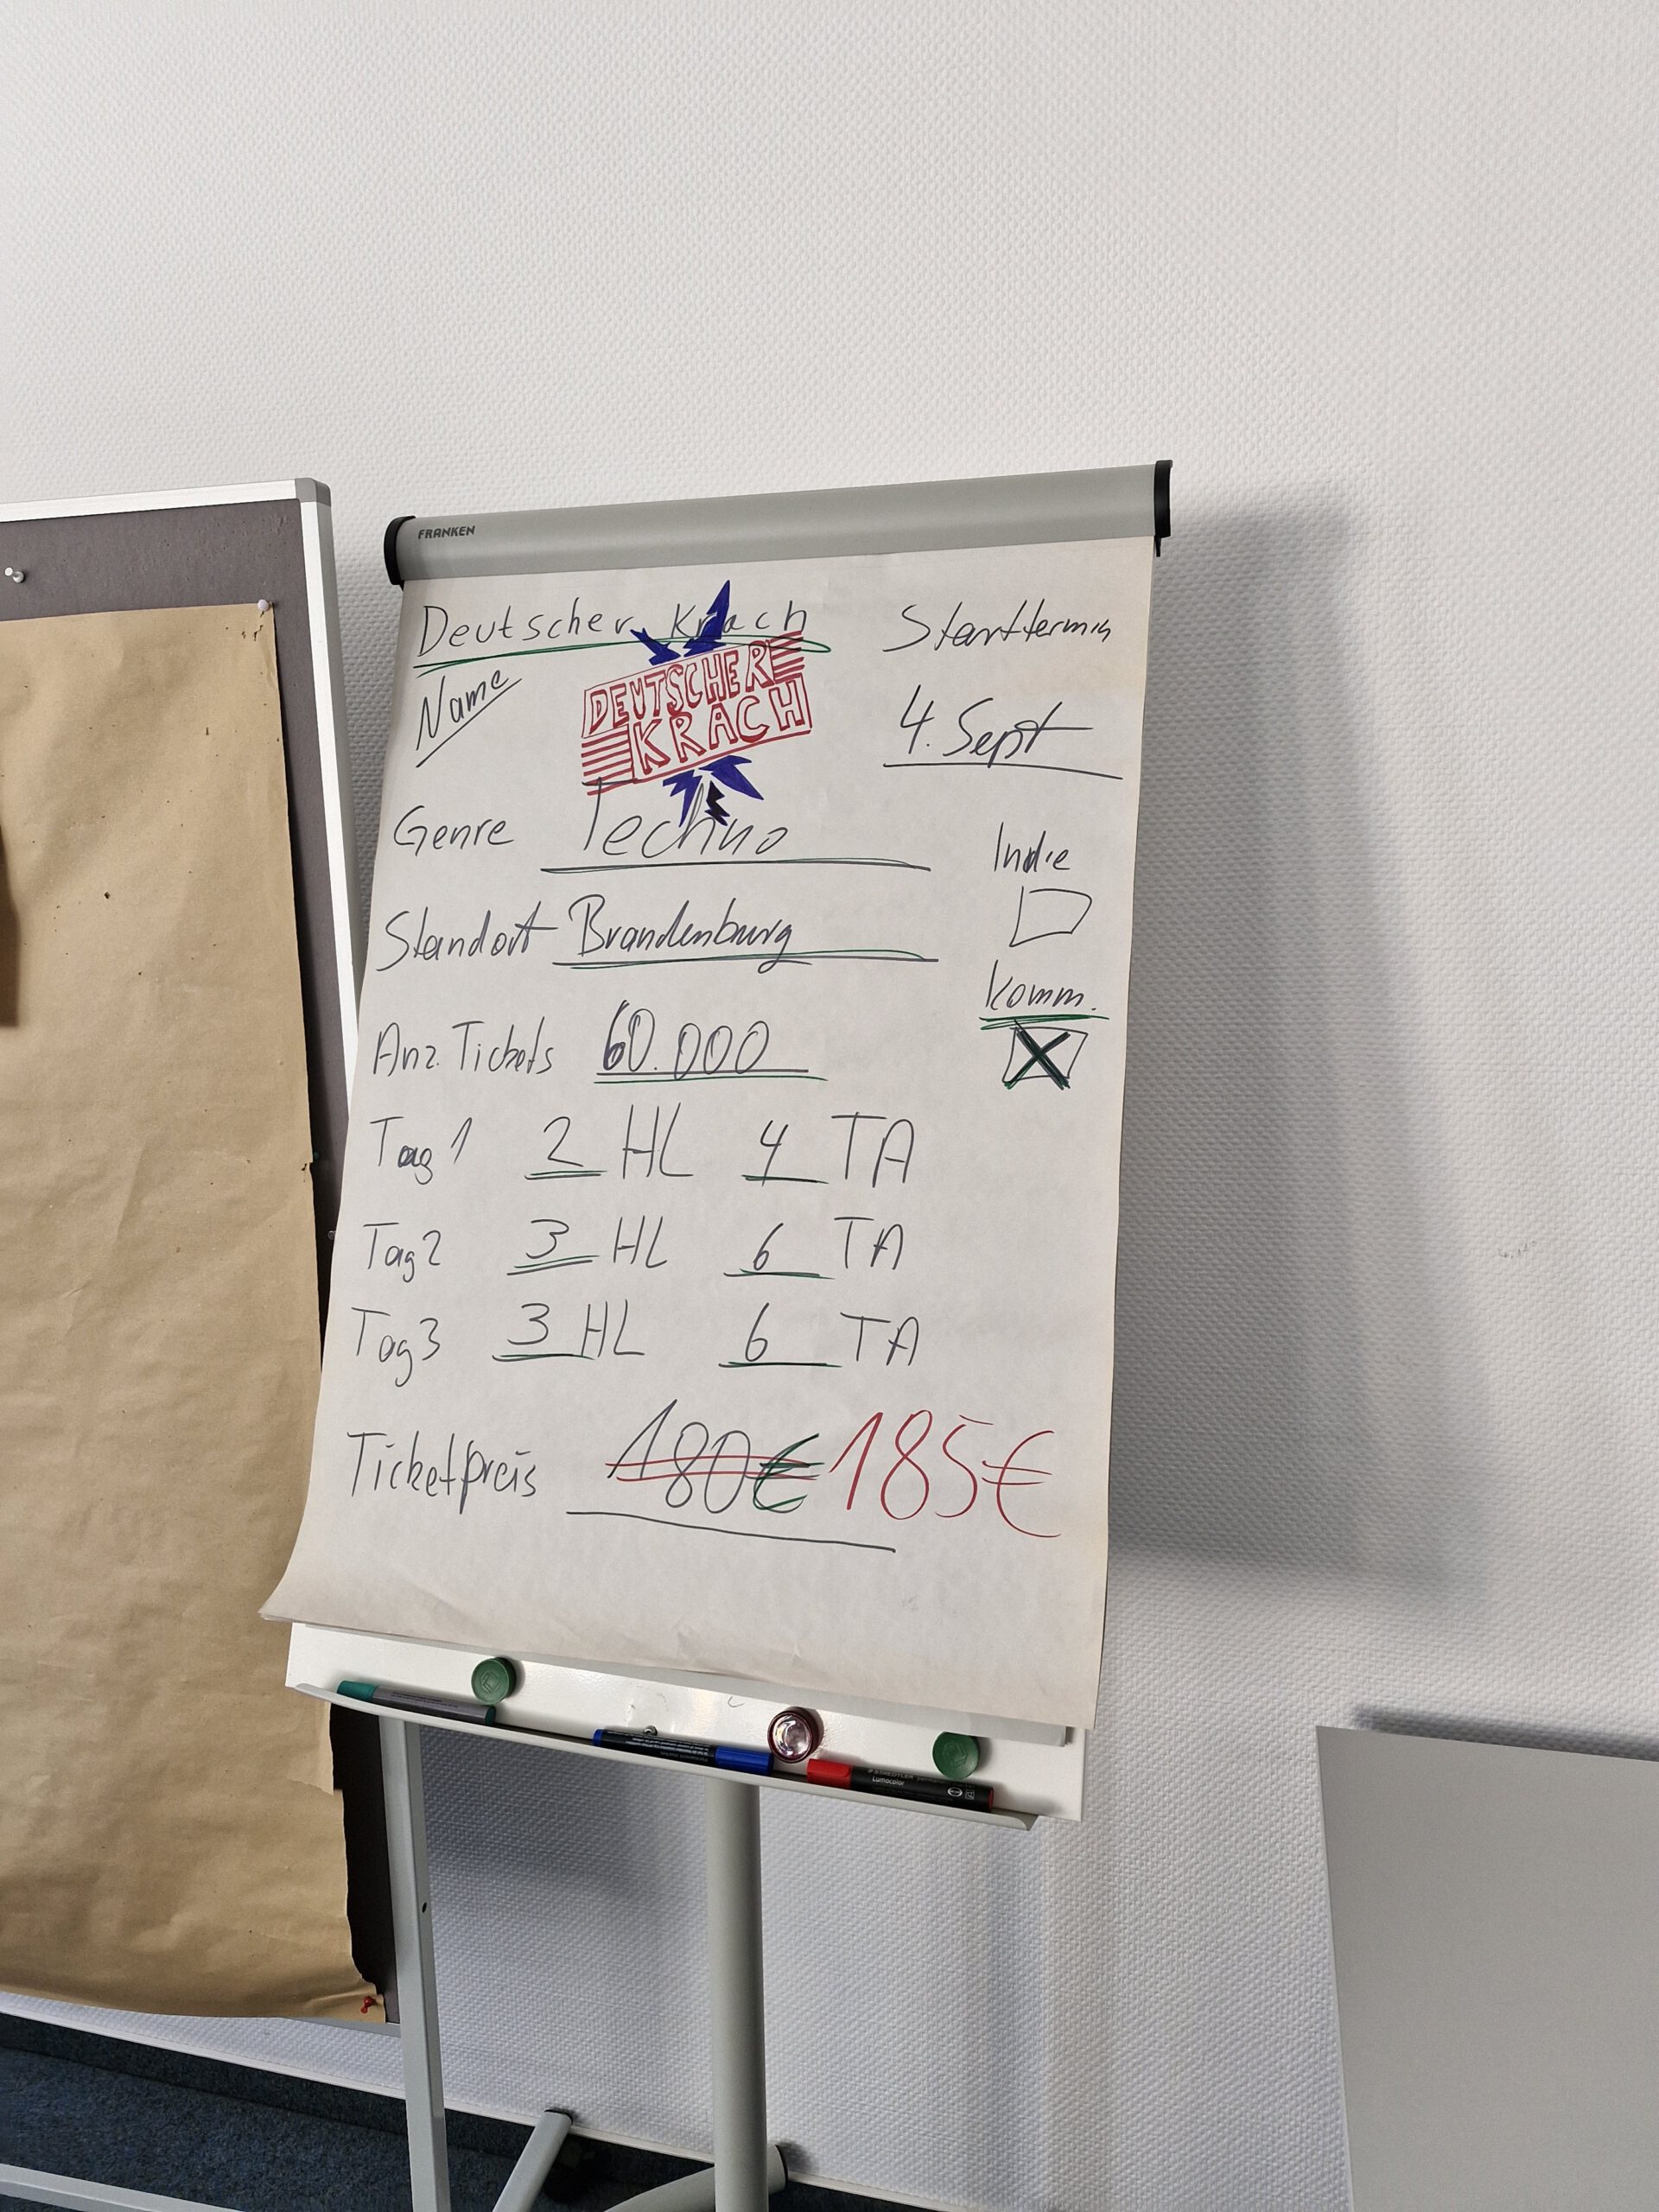 FRANKEN
Deutscher Krach
Starttermin
Name
DEUTSCHER
KRACH
4. Sept
Genre Techno
Indie
Standort Brandenburg
Komm.
Anz. Tickets 60.000
X
Tag 1 2 HL 4 TA
Tag 2 3 HL 6 TA
Tag 3 3 HL 6 TA
Ticketpreis 180€ 185€
STAEDTLER
Lumocolor